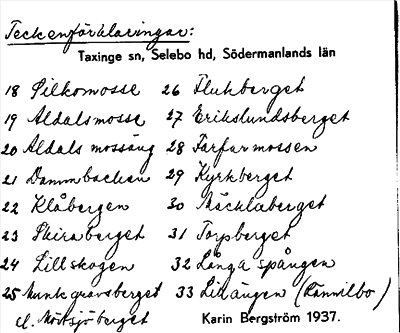 Teckenförklaringar:
Taxinge sn, Selebo hd, Södermanlands län
18 Silkomosse 26 Flukberget
19 Aldalsmosse 27 Erikslundsberget
20 Aldals mossäng 28 Farfarmossen
21 Dammbacken 29 Kyrkberget
22 Klåbergen 30 Bäcklaberget
23 Skiraberget 31 Torpberget
24 Lillskogen 32 Långa spången
25 Munkgravsberget 33 Likängen (Kännilbo)
el. Mörtsjöberget Karin Bergström 1937.